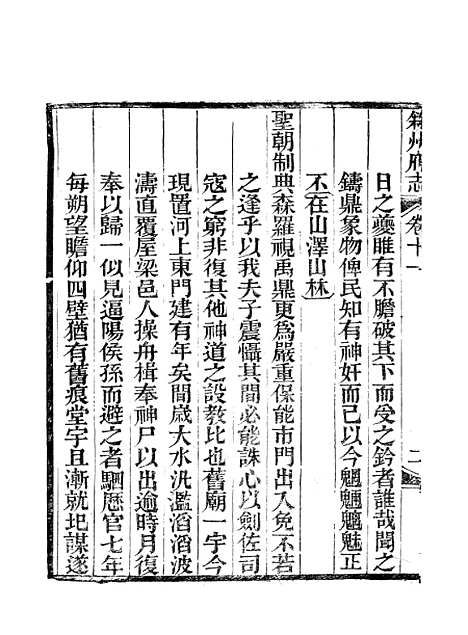 州府志
卷十一
二
日之夔睢有不膽破其下而受之鈐者誰哉聞之
鑄鼎象物俾民知有神奸而已以今魍魎魑魅正
不在山澤山林
聖朝制典森羅視禹鼎更為嚴重保能市門出入免不若
之逢乎以我夫子震懾其間必能誅心以劍佐司
寇之窮非復其他神道之設教比也舊廟一宇今
現置河上東門建有年矣間歲大水氿濫滔滔波
濤直覆屋梁邑人操舟楫奉神尸以出逾時月復
奉以歸一似見逼陽侯孫而避之者駰歷官七年
每朔望瞻仰四壁猶有舊痕堂宇且漸就圮謀遂